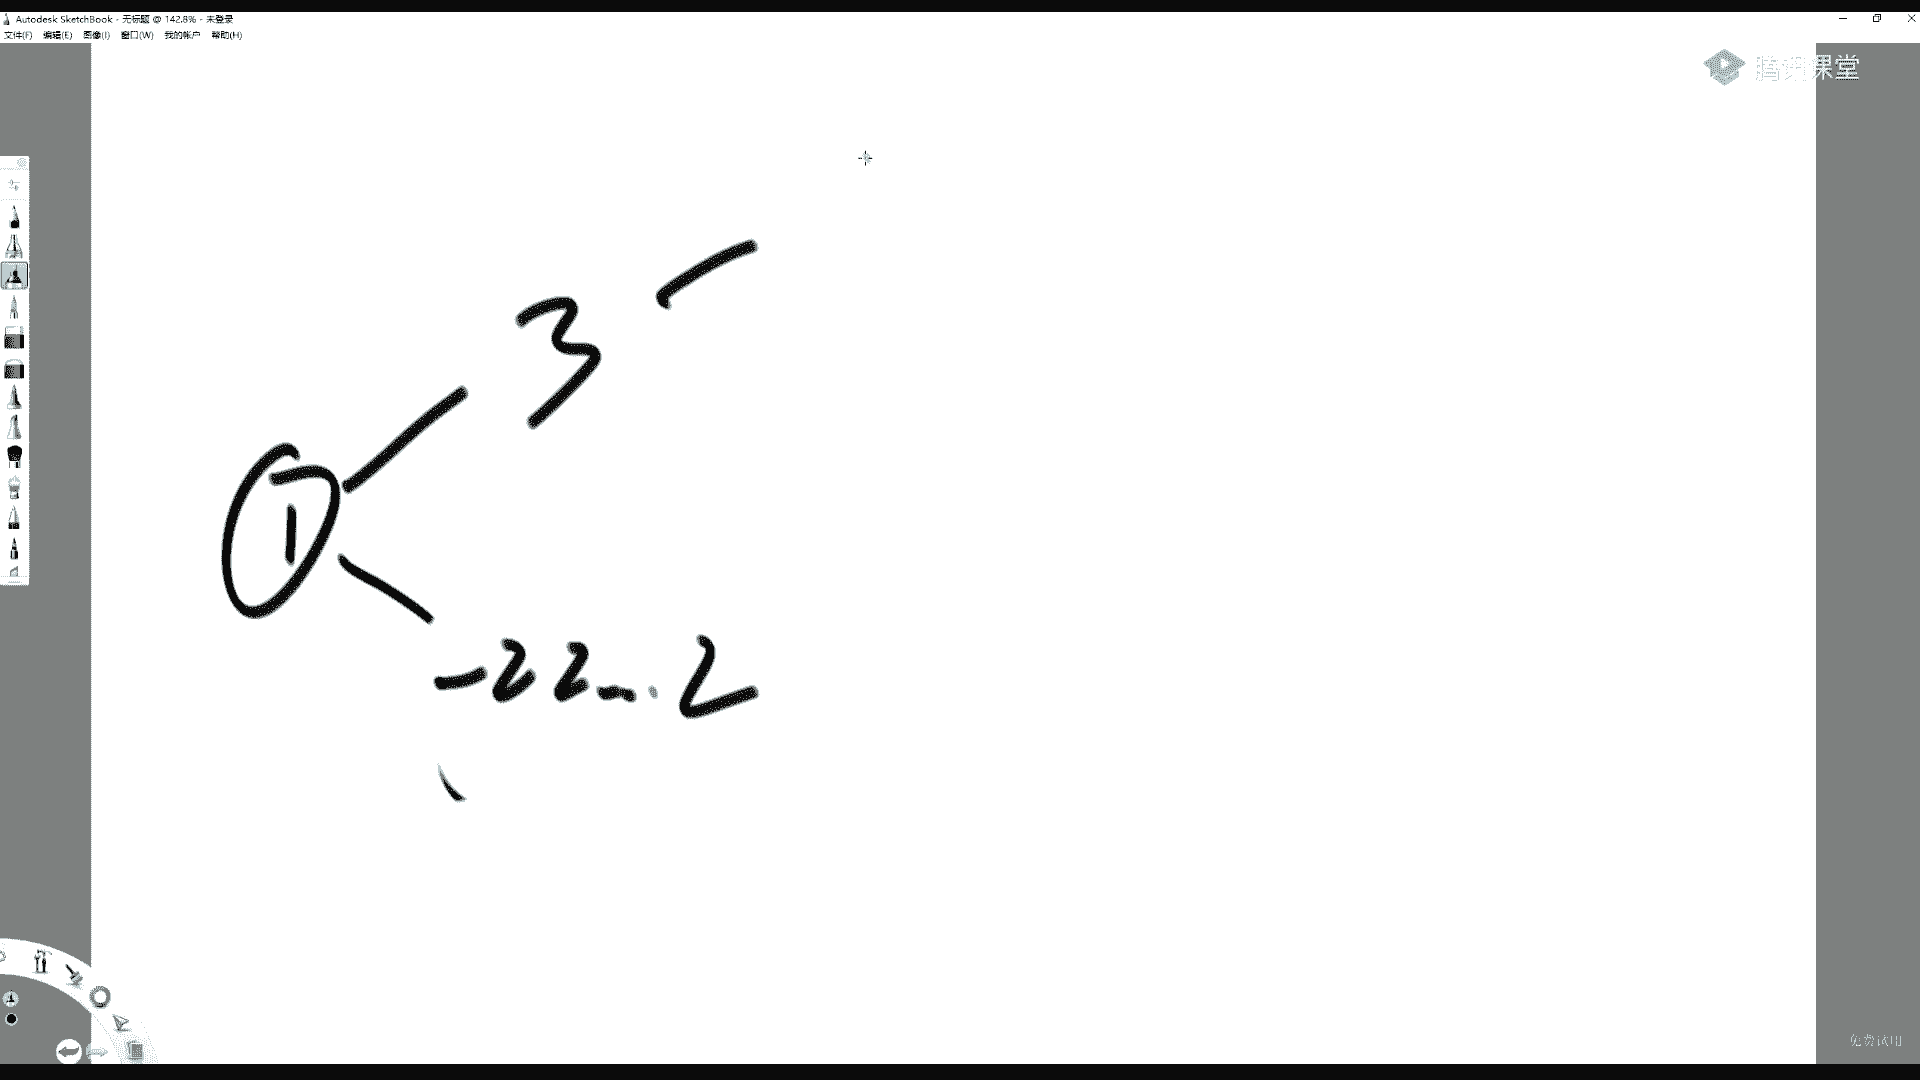 Autodesk SketchBook - 无标题 @ 142.8% - 未登录
文件(F) 编辑(E) 图像(I) 窗口(W) 我的帐户 帮助(H)
腾讯课堂
3
1
-22... 2
免费试用